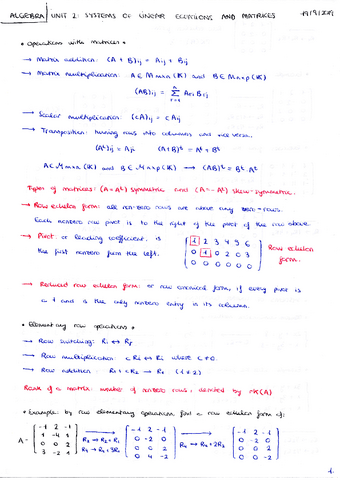 ALGEBRA UNIT 2: SYSTEMS OF LINEAR EQUATIONS AND MATRICES
• Operations with matrices •
→ Matrix addition: (A + B)ij = Aij + Bij
→ Matrix multiplication: A ∈ Mmxn (K) and B ∈ Mnxp (K)
(AB)ij = Σ Air Bij
→ Scalar multiplication: (cA)ij = cAij
→ Transposition: turning rows into columns and vice versa.
(Aᵗ)ij = Aji (A+B)ᵗ = Aᵗ + Bᵗ
A ∈ Mmxn (K) and B ∈ Mnxp (K) → (AB)ᵗ = Bᵗ·Aᵗ
Types of matrices: (A = Aᵗ) symmetric and (A = -Aᵗ) skew-symmetric.
→ Row echelon form: all non-zero rows are above any zero-rows.
Each nonzero row pivot is to the right of the pivot of the row above.
→ Pivot or leading coefficient, is
the first nonzero from the left.
1 2 3 4 9 6
0 1 0 2 0 3
0 0 0 0 0 0
Row echelon
form.
→ Reduced row echelon form: or row canonical form, if every pivot is
a 1 and is the only nonzero entry in its column.
• Elementary row operations •
→ Row switching: Ri ↔ Rj
→ Row multiplication: cRi ↔ Ri where c≠0.
→ Row addition:
Rank of a matrix: number of nonzero rows, denoted by rK(A)
• Example: by row elementary operations find a row echelon form of:
A =
-1 2 -1
1 -4 1
0 0 2
3 -2 1
R2 → R2+R1
R4 → R4+3R1
-1 2 -1
0 -2 0
0 0 2
0 4 -2
R4 → R4+2R2
-1 2 -1
0 -2 0
0 0 2
0 0 -2
1.